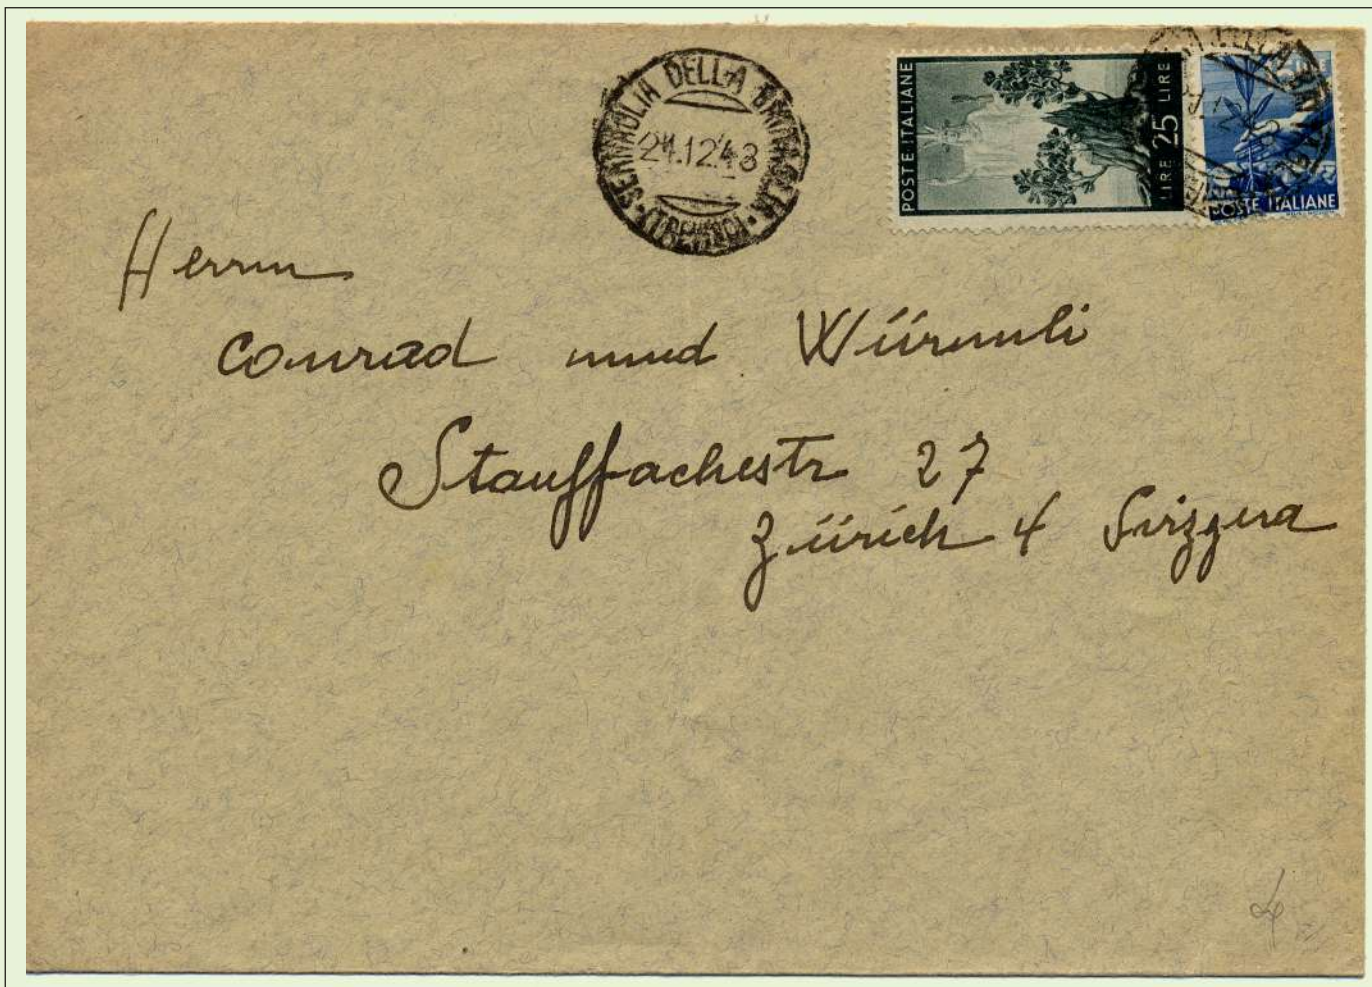 SERNAGLIA DELLA BATTAGLIA
(TREVISO)
24.12.48
POSTE ITALIANE
LIRE 25 LIRE
POSTE ITALIANE
Herrn
Conrad und Würmli
Stauffachestr 27
Zürich 4 Svizzera